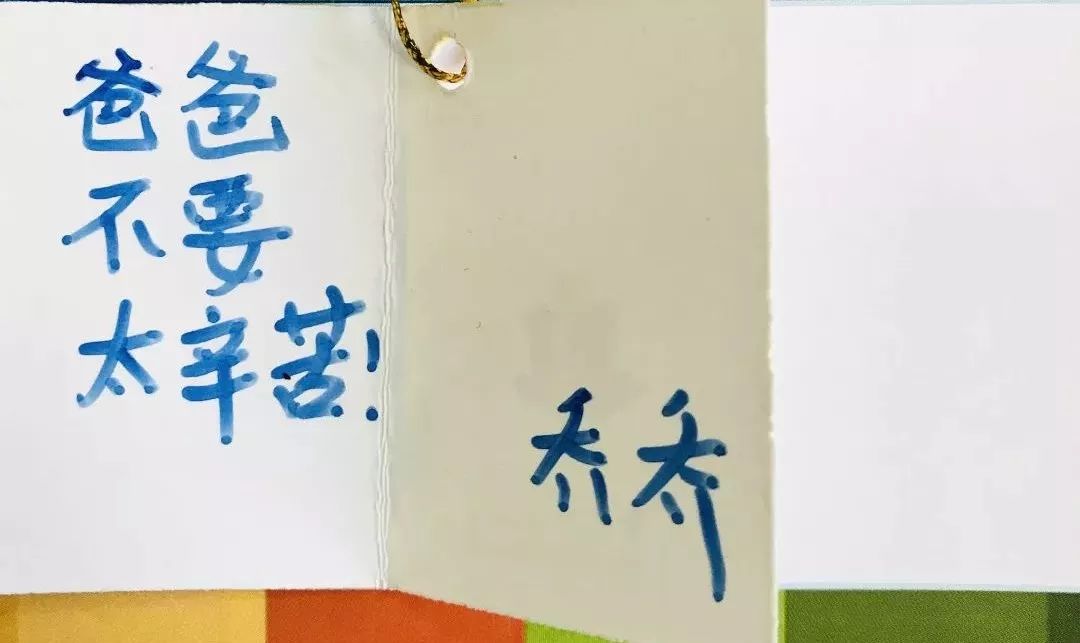 爸爸
不要
太辛苦!
乔乔